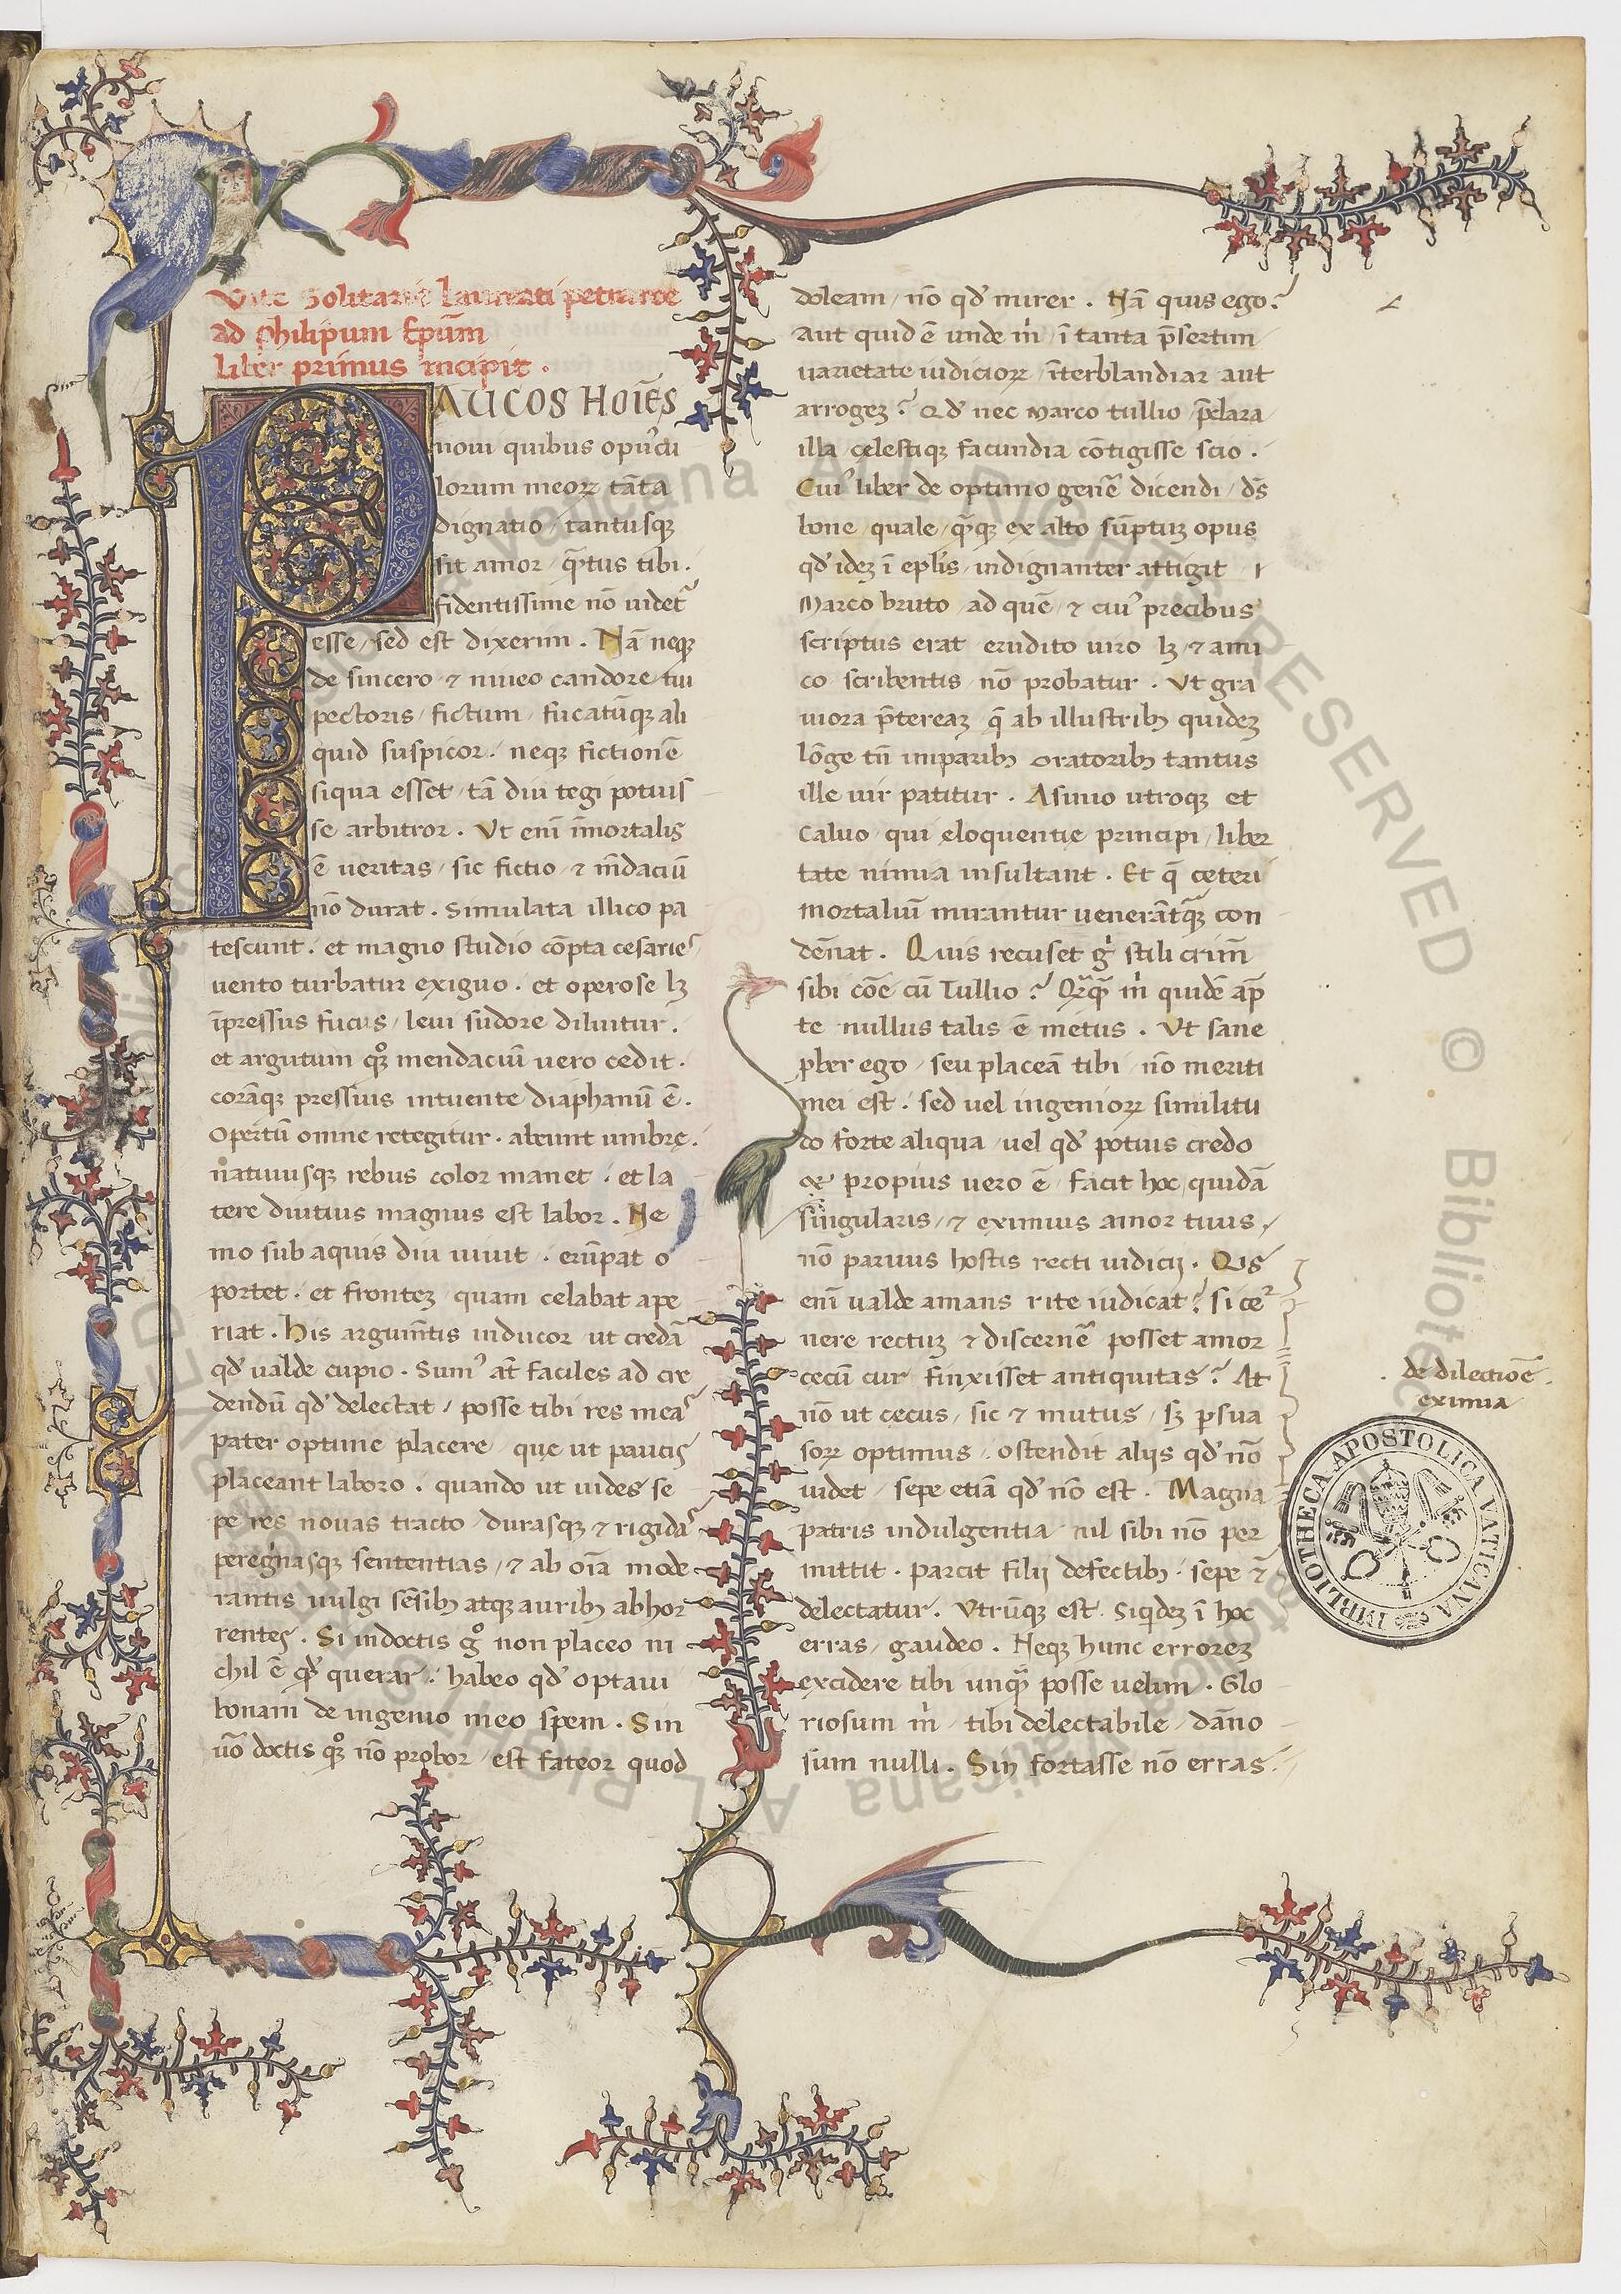 Vite Solitarie laureati petrarce
ad Philipum Ep̄um
liber primus incipit .
PAUCOS HOIĒS
noui quibus opuscu
lorum meoꝝ tāta
dignatio / tantusqꝫ
sit amor / qͣ̄tus tibi .
fidentissime nō uidet᷑
esse / sed est dixerim . Nā neqꝫ
de sincero ⁊ niueo candore tui
pectoris / fictum / fucatūqꝫ ali
quid suspicor . neqꝫ fictionē
siqua esset / tā diu tegi potuis
se arbitror . Ut eni īmortalis
ē ueritas / sic fictio / ⁊ m̄daciū
nō durat . Simulata illico pa
tescunt . et magno studio cōpta cesaries
uento turbatur exiguo . et operose lꝫ
īpressus fucus / leui sudore diluitur .
et argutum qͦꝫ mendaciū uero cedit .
corāqꝫ pressius intuente diaphanū ē .
Opertū omne retegitur . abeunt umbrę .
natiuusqꝫ rebus color manet . et la
tere diutius magnus est labor . Ne
mo sub aquis diu uiuit . erūpat o
portet . et frontez quam celabat ape
riat . His argumētis inducor ut credā
qd̓ ualde cupio . Sumꝰ at̄ faciles ad cre
dendū qd̓ delectat / posse tibi res meas
pater optime placere / quę ut paucis
placeant laboro . quando ut uides se
pe res nouas tracto / durasqꝫ ⁊ rigidas
peregͥnasqꝫ sententias / ⁊ ab oīa mode
rantis uulgi sēsibꝫ atqꝫ auribꝫ abhor
rentes . Si indoctis gͦ non placeo ni
chil ē qd̓ querar . habeo qd̓ optaui
bonam de ingenio meo spem . Sin
uͦo doctis qͦꝫ nō probor / est fateor quod
doleam / nō qd̓ mirer . Nā quis ego ?
aut quid ē unde m̍ / ī tanta p̄sertim
uarietate iudicioꝝ / īterblandiar aut
arrogez ? Qd̓ nec Marco tullio / p̄clara
illa cęlestiqꝫ facundia cōtigisse scio .
Cuiꝰ liber de optimo genē dicendi / ds̄
bone / quale / qͣ̄qꝫ ex alto sūptuz opus
qd̓ idez ī epl̄is / indignanter attigit
Marco bruto / ad quē / ⁊ cuiꝰ precibus
scriptus erat / erudito uiro lꝫ ⁊ ami
co scribentis / nō probatur . Ut gra
uiora p̄tereaz / q̄ ab illustribꝫ quidez
lōge tn̄ imparibꝫ oratoribꝫ tantus
ille uir patitur . Asinio utroqꝫ et
Caluo / qui eloquentię principi / liber
tate nimia insultant . Et q̄ cęteri
mortaliū mirantur uenerātqꝫ con
dēnat . Quis recuset gͦ stili crim̄
sibi cōē cū Tullio ? Qꝝqͣ̄ m̍ quidē ap̄
te nullus talis ē metus . Ut sane
ꝓber ego / seu placeā tibi / nō meriti
mei est . sed uel ingenioꝝ similitu
do forte aliqua / uel qd̓ potius credo
⁊ propius uero ē / facit hoc quidā
singularis / ⁊ eximius amor tuus /
nō paruus hostis recti iudicij . Qis
eni ualde amans rite iudicat ? si ce
nere rectuz ⁊ discernē posset amor
cecū cur finxisset antiquitas ? At
nō ut cęcus / sic ⁊ mutus / sꝫ ꝑsua
soꝝ optimus / ostendit alijs qd̓ nō
uidet / sepe etiā qd̓ nō est . Magna
patris indulgentia / nil sibi nō per
mittit . parcit filij defectibꝫ . sepe ⁊
delectatur . Utrūqꝫ est . Siqͥdez ī hoc
erras / gaudeo . Neqꝫ hunc errorez
excidere tibi unqͣ̄ posse uelim . Glo
riosum m̍ / tibi delectabile / dāno
sum nulli . Sin fortasse nō erras .
de dilectiōe
eximia
BIBLIOTHECA APOSTOLICA VATICANA